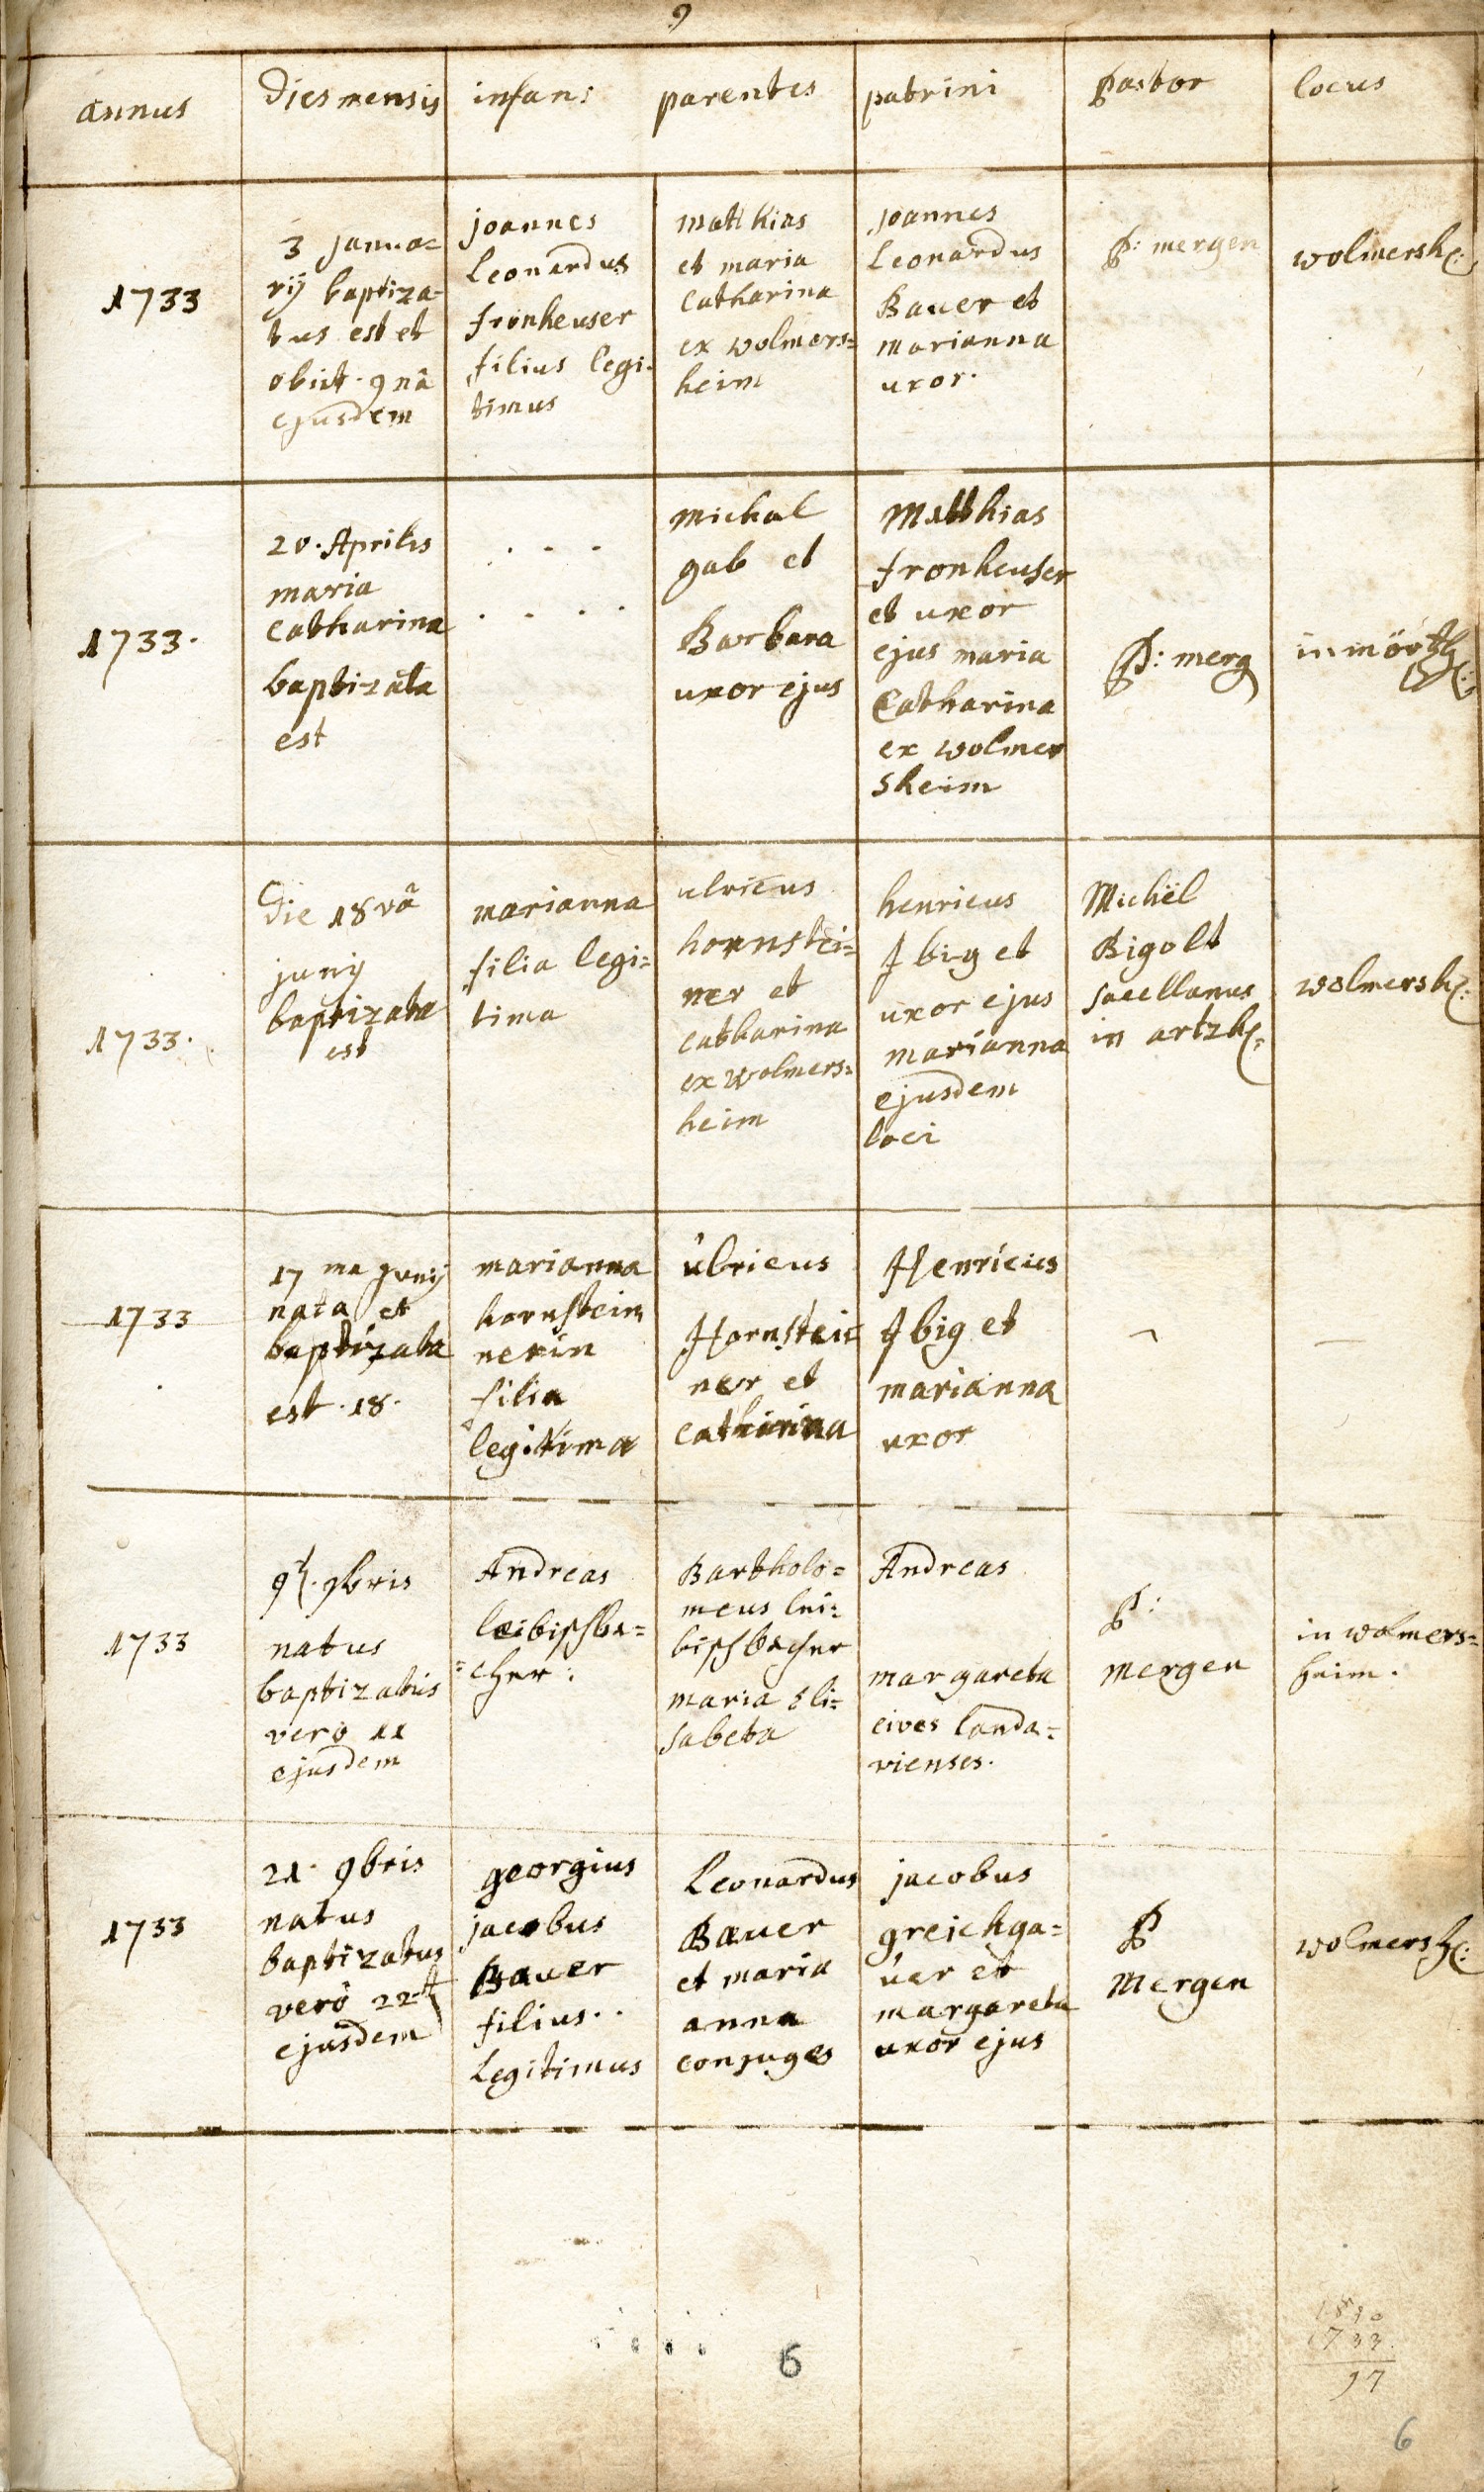 9
annus dies mensis infans parentes patrini pastor locus
1733
3 janua=
rij baptiza-
tus est et
obiit. 9nâ
ejusdem
joannes
Leonardus
fronheuser
filius legi-
timus
matthias
et maria
catharina
ex wolmers=
heim
joannes
Leonardus
Bauer et
marianna
uxor.
P: mergen
wolmersh:
1733.
20. Aprilis
maria
catharina
baptizata
est
. . .
. . . .
michal
gab et
Barbara
uxor ejus
Matthias
fronheuser
et uxor
ejus maria
Catharina
ex wolmer
sheim
P: merg
in mörtzh:
1733.
Die 18vâ
junij
baptizata
est
marianna
filia legi=
tima
ulricus
hornstei=
ner et
catharina
ex wolmers=
heim
henricus
Ibig et
uxor ejus
marianna
ejusdem
loci
Michël
Bigolt
sacellanus
in artzh:
wolmersh:
1733
17 ma Junij
nata et
baptizata
est. 18.
marianna
hornstein
nerin
filia
legitima
ulricus
Hornstei=
ner et
catharina
Henricus
Ibig et
marianna
uxor
1733
9t. 9bris
natus
baptizatus
verò 11
ejusdem
Andreas
leibischba=
=cher:
Bartholo=
meus lei=
bischbacher
maria Eli=
sabeta
Andreas
margareta
cives landa=
vienses.
P:
mergen
in wolmers=
heim.
1733
21. 9bris
natus
baptizatus
verò 22t
ejusdem
georgius
jacobus
Bauer
filius..
Legitimus
Leonardus
Bauer
et maria
anna
conjuges
jacobus
greichga=
uer et
margareta
uxor ejus
P
Mergen
wolmersh:
6
1830
1733.
97
6